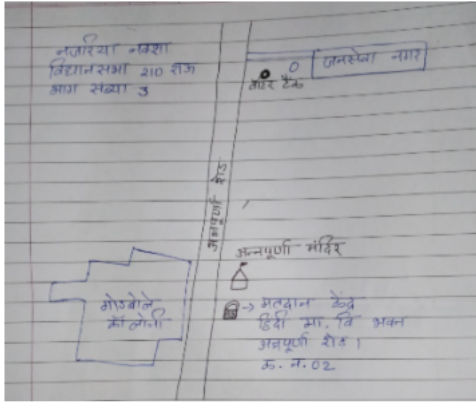 नजरिया नक्शा
विधानसभा 210 राऊ
भाग संख्या 3
जनसेवा नगर
वाटर टैंक
अन्नपूर्णा रोड
अन्नपूर्णा मंदिर
गोडबोले
कॉलोनी
→ मतदान केंद्र
हिंदी मा. वि भवन
अन्नपूर्णा रोड।
क. न. 02